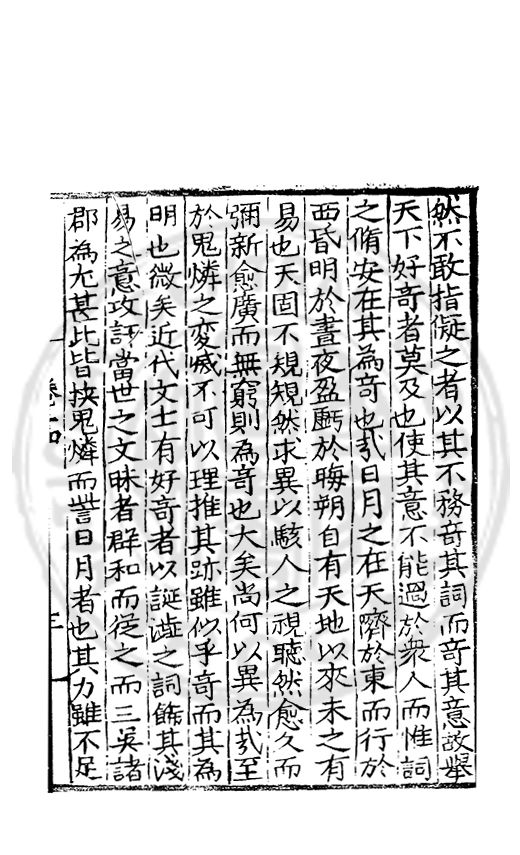 然不敢指儗之者以其不務竒其詞而竒其意故舉
天下好竒者莫及也使其意不能過於衆人而惟詞
之脩安在其為竒也㢤日月之在天隮於東而行於
西昏明於晝夜盈虧於晦朔自有天地以來未之有
易也天固不規規然求異以駭人之視聽然愈久而
彌新愈廣而無窮則為竒也大矣尚何以異為㢤至
於鬼燐之変烕不可以理推其跡雖似乎竒而其為
明也微矣近代文士有好竒者以誕澁之詞飾其淺
易之意攻訐當世之文昧者群和而從之而三吳諸
郡為尤甚此皆挾鬼燐而訾日月者也其力雖不足
卷十四
三